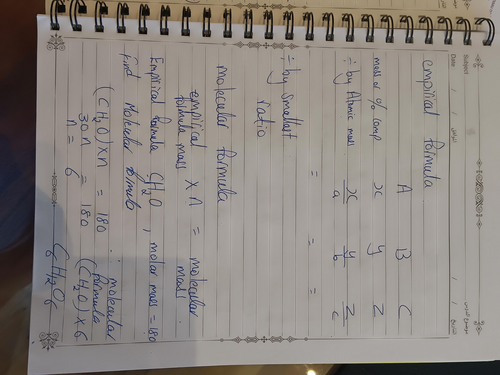 Subject
Date
empirical formula
A B C
mass or % comp x y z
÷ by Atomic mass x/a y/b z/c
= = =
÷ by smallest
ratio
molecular formula
empirical formula mass × n = molecular mass.
Empirical formula CH₂O, molar mass = 180
find molecular formula
(CH₂O)×n = 180 ∴ molecular formula
30n = 180 (CH₂O)×6
n = 6
C6H₂O6